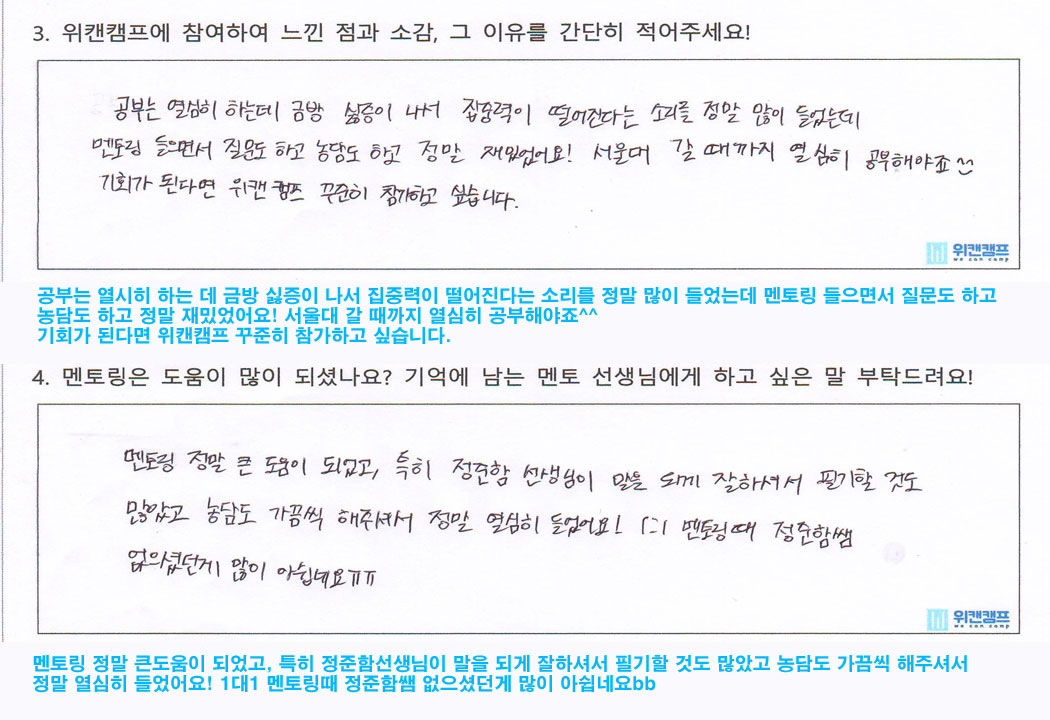 3. 위캔캠프에 참여하여 느낀 점과 소감, 그 이유를 간단히 적어주세요!
공부는 열심히 하는데 금방 싫증이 나서 집중력이 떨어진다는 소리를 정말 많이 들었는데
멘토링 들으면서 질문도 하고 농담도 하고 정말 재밌었어요! 서울대 갈 때까지 열심히 공부해야죠^^
기회가 된다면 위캔캠프 꾸준히 참가하고 싶습니다.
위캔캠프
we can camp
공부는 열시히 하는 데 금방 싫증이 나서 집중력이 떨어진다는 소리를 정말 많이 들었는데 멘토링 들으면서 질문도 하고
농담도 하고 정말 재밌었어요! 서울대 갈 때까지 열심히 공부해야죠^^
기회가 된다면 위캔캠프 꾸준히 참가하고 싶습니다.
4. 멘토링은 도움이 많이 되셨나요? 기억에 남는 멘토 선생님에게 하고 싶은 말 부탁드려요!
멘토링 정말 큰 도움이 되었고, 특히 정준함 선생님이 말을 되게 잘하셔서 필기할 것도
많았고 농담도 가끔씩 해주셔서 정말 열심히 들었어요! 1:1 멘토링때 정준함쌤
없으셨던게 많이 아쉽네요ㅠㅠ
위캔캠프
we can camp
멘토링 정말 큰도움이 되었고, 특히 정준함선생님이 말을 되게 잘하셔서 필기할 것도 많았고 농담도 가끔씩 해주셔서
정말 열심히 들었어요! 1대1 멘토링때 정준함쌤 없으셨던게 많이 아쉽네요bb